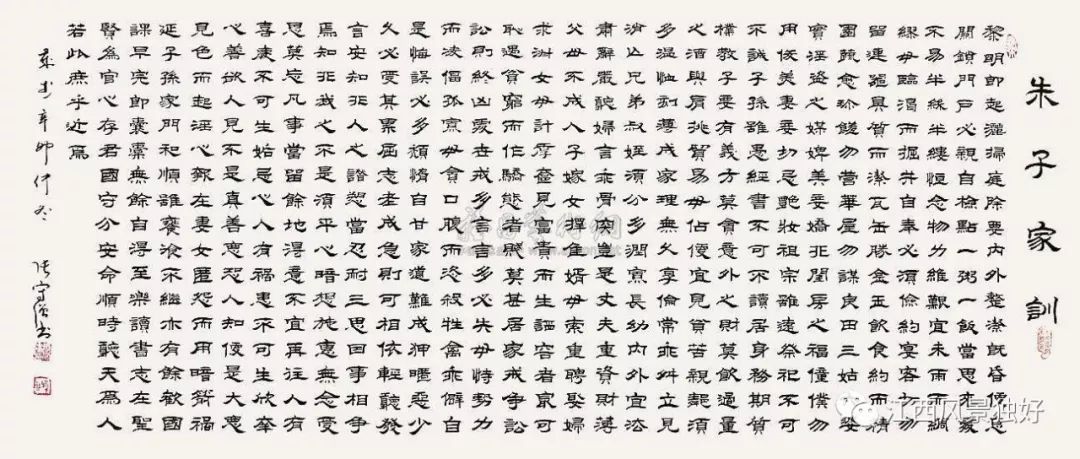 朱子家訓
黎明即起灑掃庭除要內外整潔既昏便息
關鎖門戶必親自檢點一粥一飯當思來處
不易半絲半縷恒念物力維艱宜未雨而綢
繆毋臨渴而掘井自奉必須儉約宴客切勿
留連器具質而潔瓦缶勝金玉飲食約而精
園蔬愈珍饈勿營華屋勿謀良田三姑六婆
實淫盜之媒婢美妾嬌非閨房之福僮僕勿
用俊美妻妾切忌艷妝祖宗雖遠祭祀不可
不誠子孫雖愚經書不可不讀居身務期質
樸教子要有義方莫貪意外之財莫飲過量
之酒與肩挑貿易毋佔便宜見貧苦親鄰須
多溫恤刻薄成家理無久享倫常乖舛立見
消亡兄弟叔姪須分多潤寡長幼內外宜法
肅辭嚴聽婦言乖骨肉豈是丈夫重資財薄
父母不成人子嫁女擇佳婿毋索重聘娶婦
求淑女毋計厚奩見富貴而生諂容者最可
恥遇貧窮而作驕態者賤莫甚居家戒爭訟
訟則終凶處世戒多言言多必失毋恃勢力
而凌逼孤寡毋貪口腹而恣殺牲禽乖僻自
是悔誤必多頹惰自甘家道難成狎暱惡少
久必受其累屈志老成急則可相依輕聽發
言安知非人之譖愬當忍耐三思因事相爭
焉知非我之不是須平心暗想施惠無念受
恩莫忘凡事當留餘地得意不宜再往人有
喜慶不可生妒忌心人有禍患不可生欣幸
心善欲人見不是真善惡恐人知便是大惡
見色而起淫心報在妻女匿怨而用暗箭禍
延子孫家門和順雖饔飧不繼亦有餘歡國
課早完即囊橐無餘自得至樂讀書志在聖
賢為官心存君國守分安命順時聽天為人
若此庶乎近焉
辛卯仲冬
江西风景独好